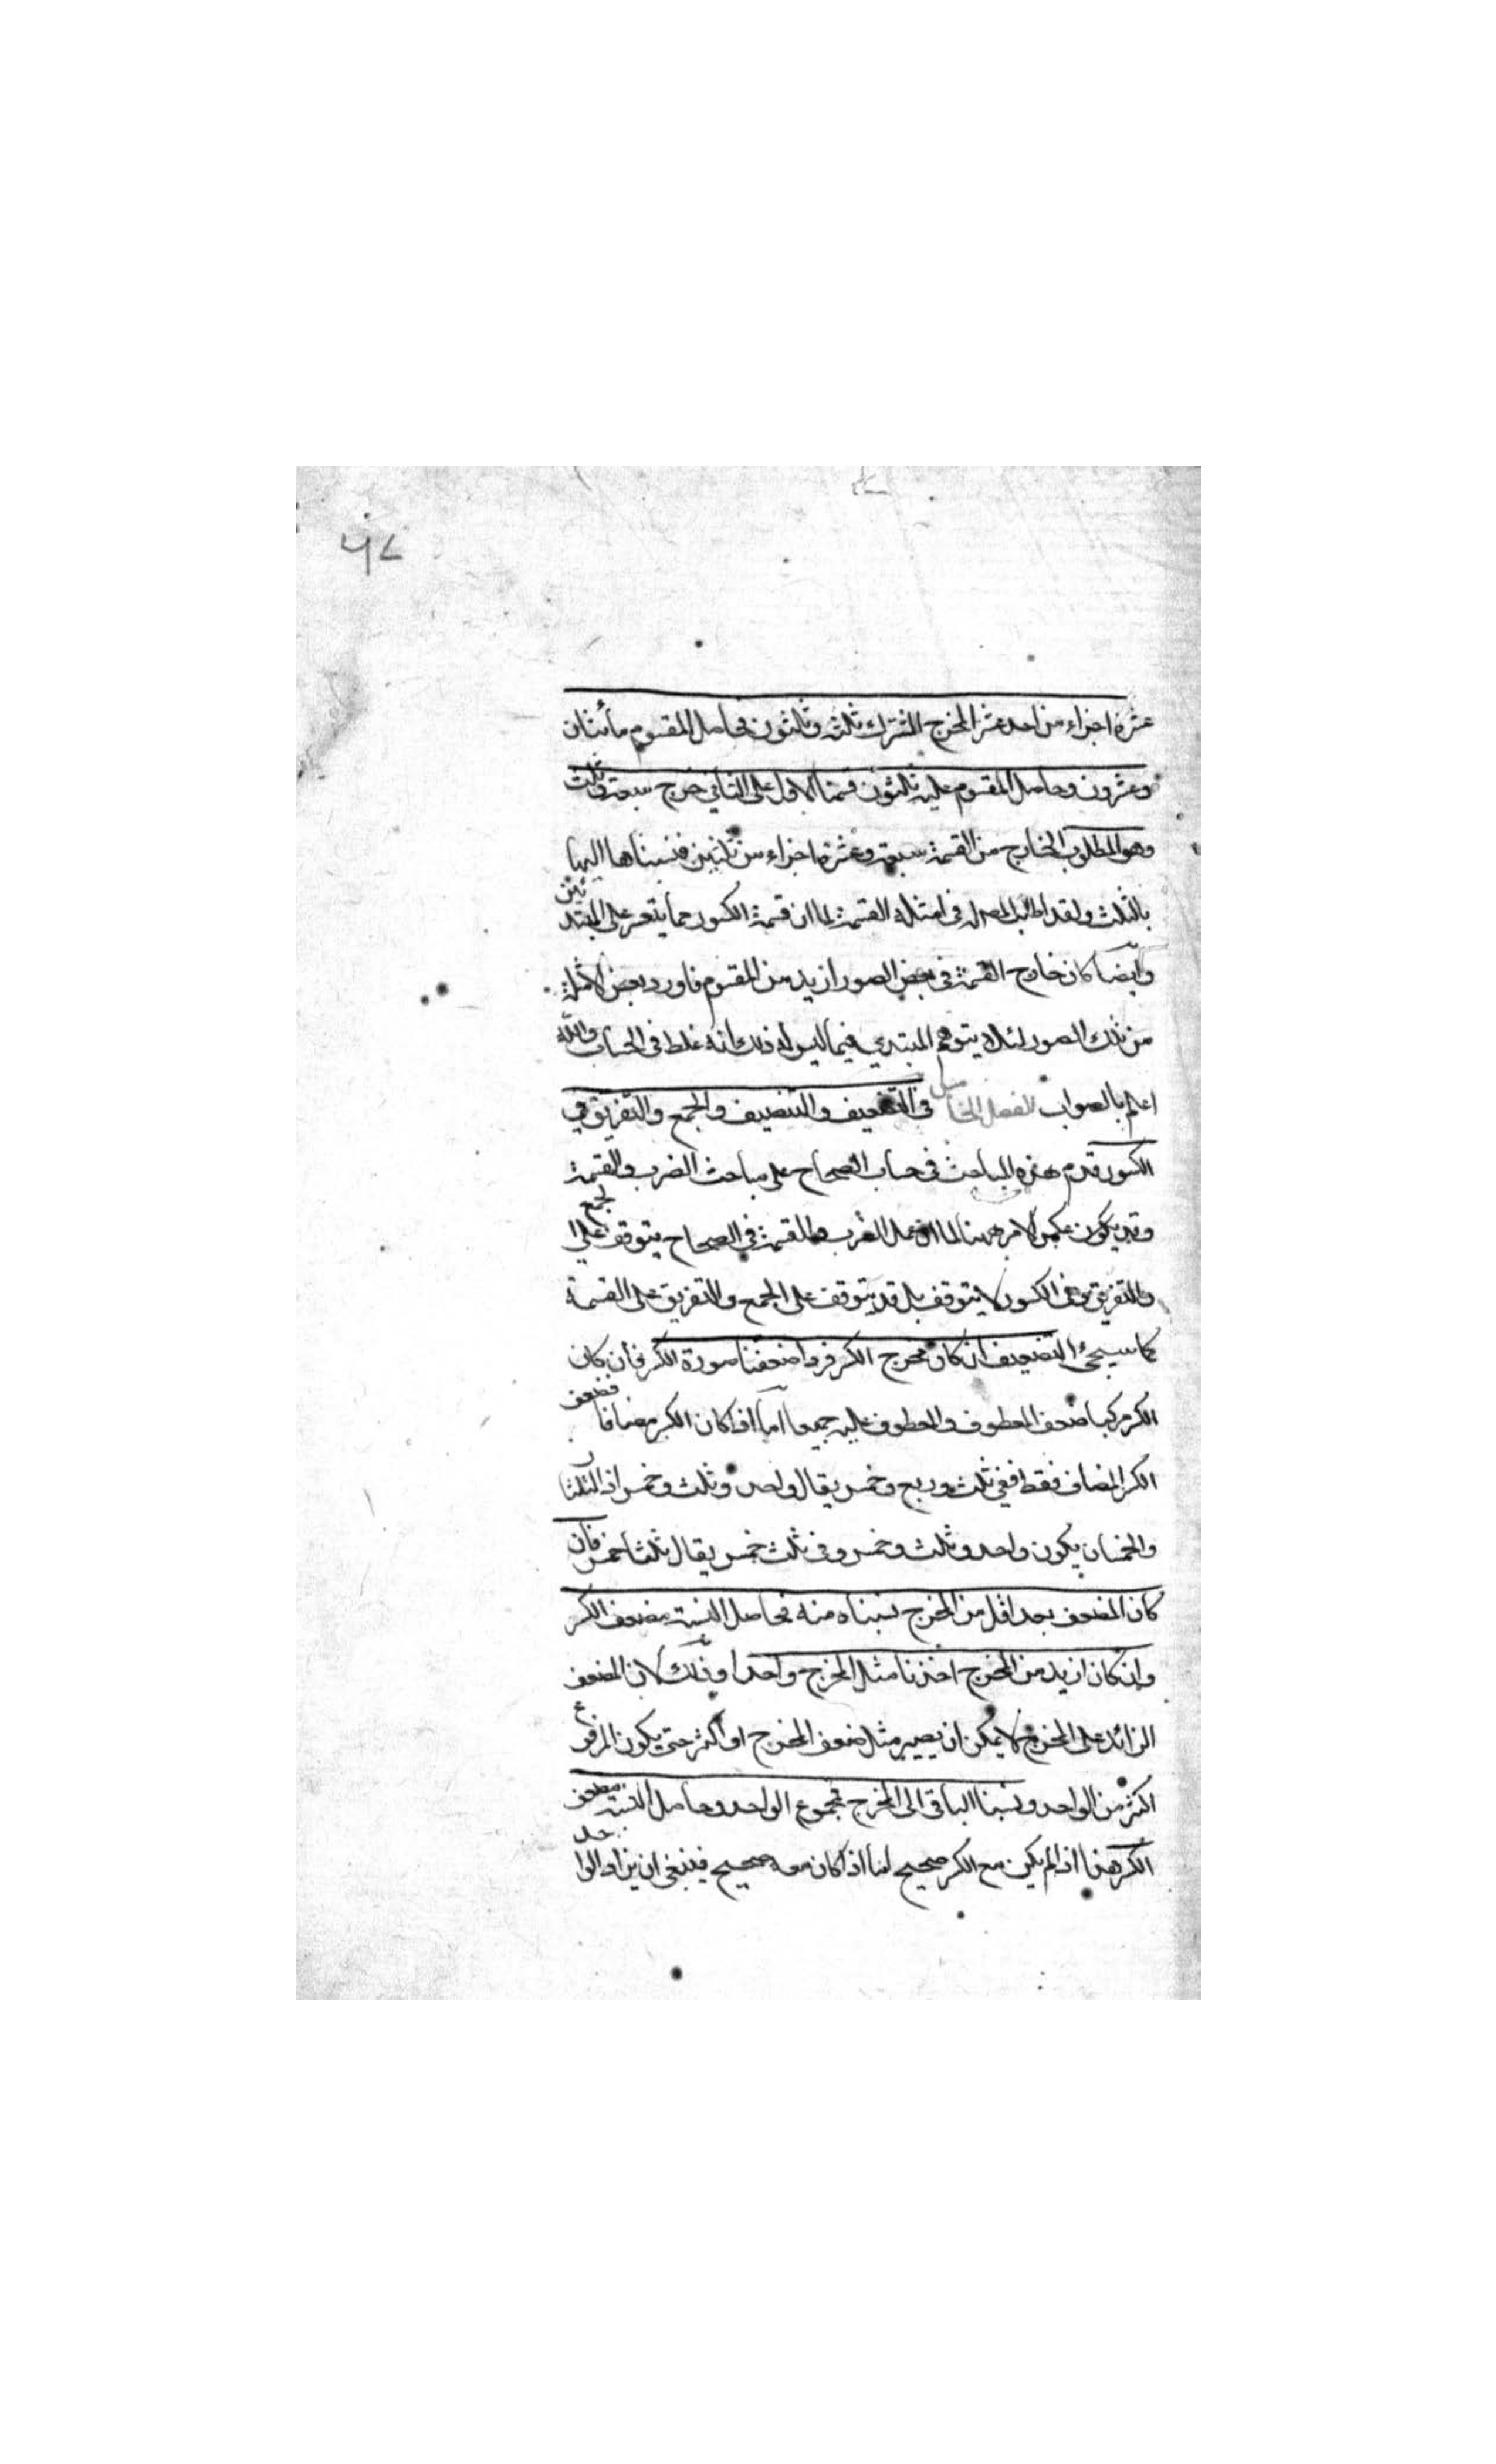 ٥٧
عشرة اجزاء من احد عشر المخرج المشترك ثلثة وثلثون فحاصل المقسوم مأتان
وعشرون وحاصل المقسوم عليه ثلثون قسمنا الاول على الثاني خرج سبعة وثلث
وهو المطلوب الخارج من القسمة سبعة وعشرة اجزاء من ثلثين فنسبناها اليها
بالثلث ولقد اطال المص في امثلة القسمة لما ان قسمة الكسور مما يتعسر على المبتدئين
وايضا كان خارج القسمة في بعض الصور ازيد من المقسوم فاورد بعض الامثلة
من تلك الصور لئلا يتوهم المبتدي فيما ليس له ذلك انه غلط في الحساب والله
اعلم بالصواب الفصل الخامس في التضعيف والتنصيف والجمع والتفريق في
الكسور قدم هذه المباحث في حساب الصحاح على مباحث الضرب والقسمة
وقد يكون عكس الامر ههنا لما ان عمل الضرب والقسمة في الصحاح يتوقف على الجمع
والتفريق وفي الكسور لا يتوقف بل قد يتوقف على الجمع والتفريق على القسمة
كما سيجئ التضعيف ان كان مخرج الكسر فردا ضعفنا صورة الكسر فان كان
الكسر مركبا ضعف المعطوف والمعطوف عليه جميعا اما اذا كان الكسر مضافا فضعف
الكسر المضاف فقط ففي ثلث وربع وخمس يقال واحد وثلث وخمس اذ الثلثان
والخمسان يكون واحد وثلث وخمس وفي ثلث خمس يقال ثلثا خمس فان
كان المضعف بعد اقل من المخرج نسبناه منه فحاصل النسبة مضعف الكسر
وان كان ازيد من المخرج اخذنا مثل المخرج واحدا وذلك لان المضعف
الزائد على المخرج لا يمكن ان يصير مثل ضعف المخرج او اكثر حتى يكون المرفوع
اكثر من الواحد ونسبنا الباقي الى المخرج فمجموع الواحد وحاصل النسبة مضعف
الكسر هذا اذا لم يكن مع الكسر صحيح اما اذا كان معه صحيح فينبغي ان يزاد الواحد